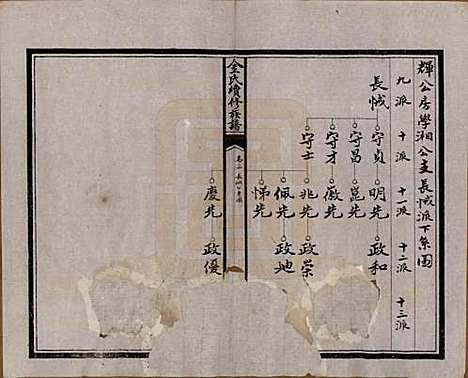 輝公房學湘公支長誠派下系圖
九派 十派 十一派 十二派 十三派
長誠
守貞 明先 政和
守昌 崑先
守才 徽先
守士 兆先 政榮
佩先 政地
悌先
金氏續修族譜
慶先 政優